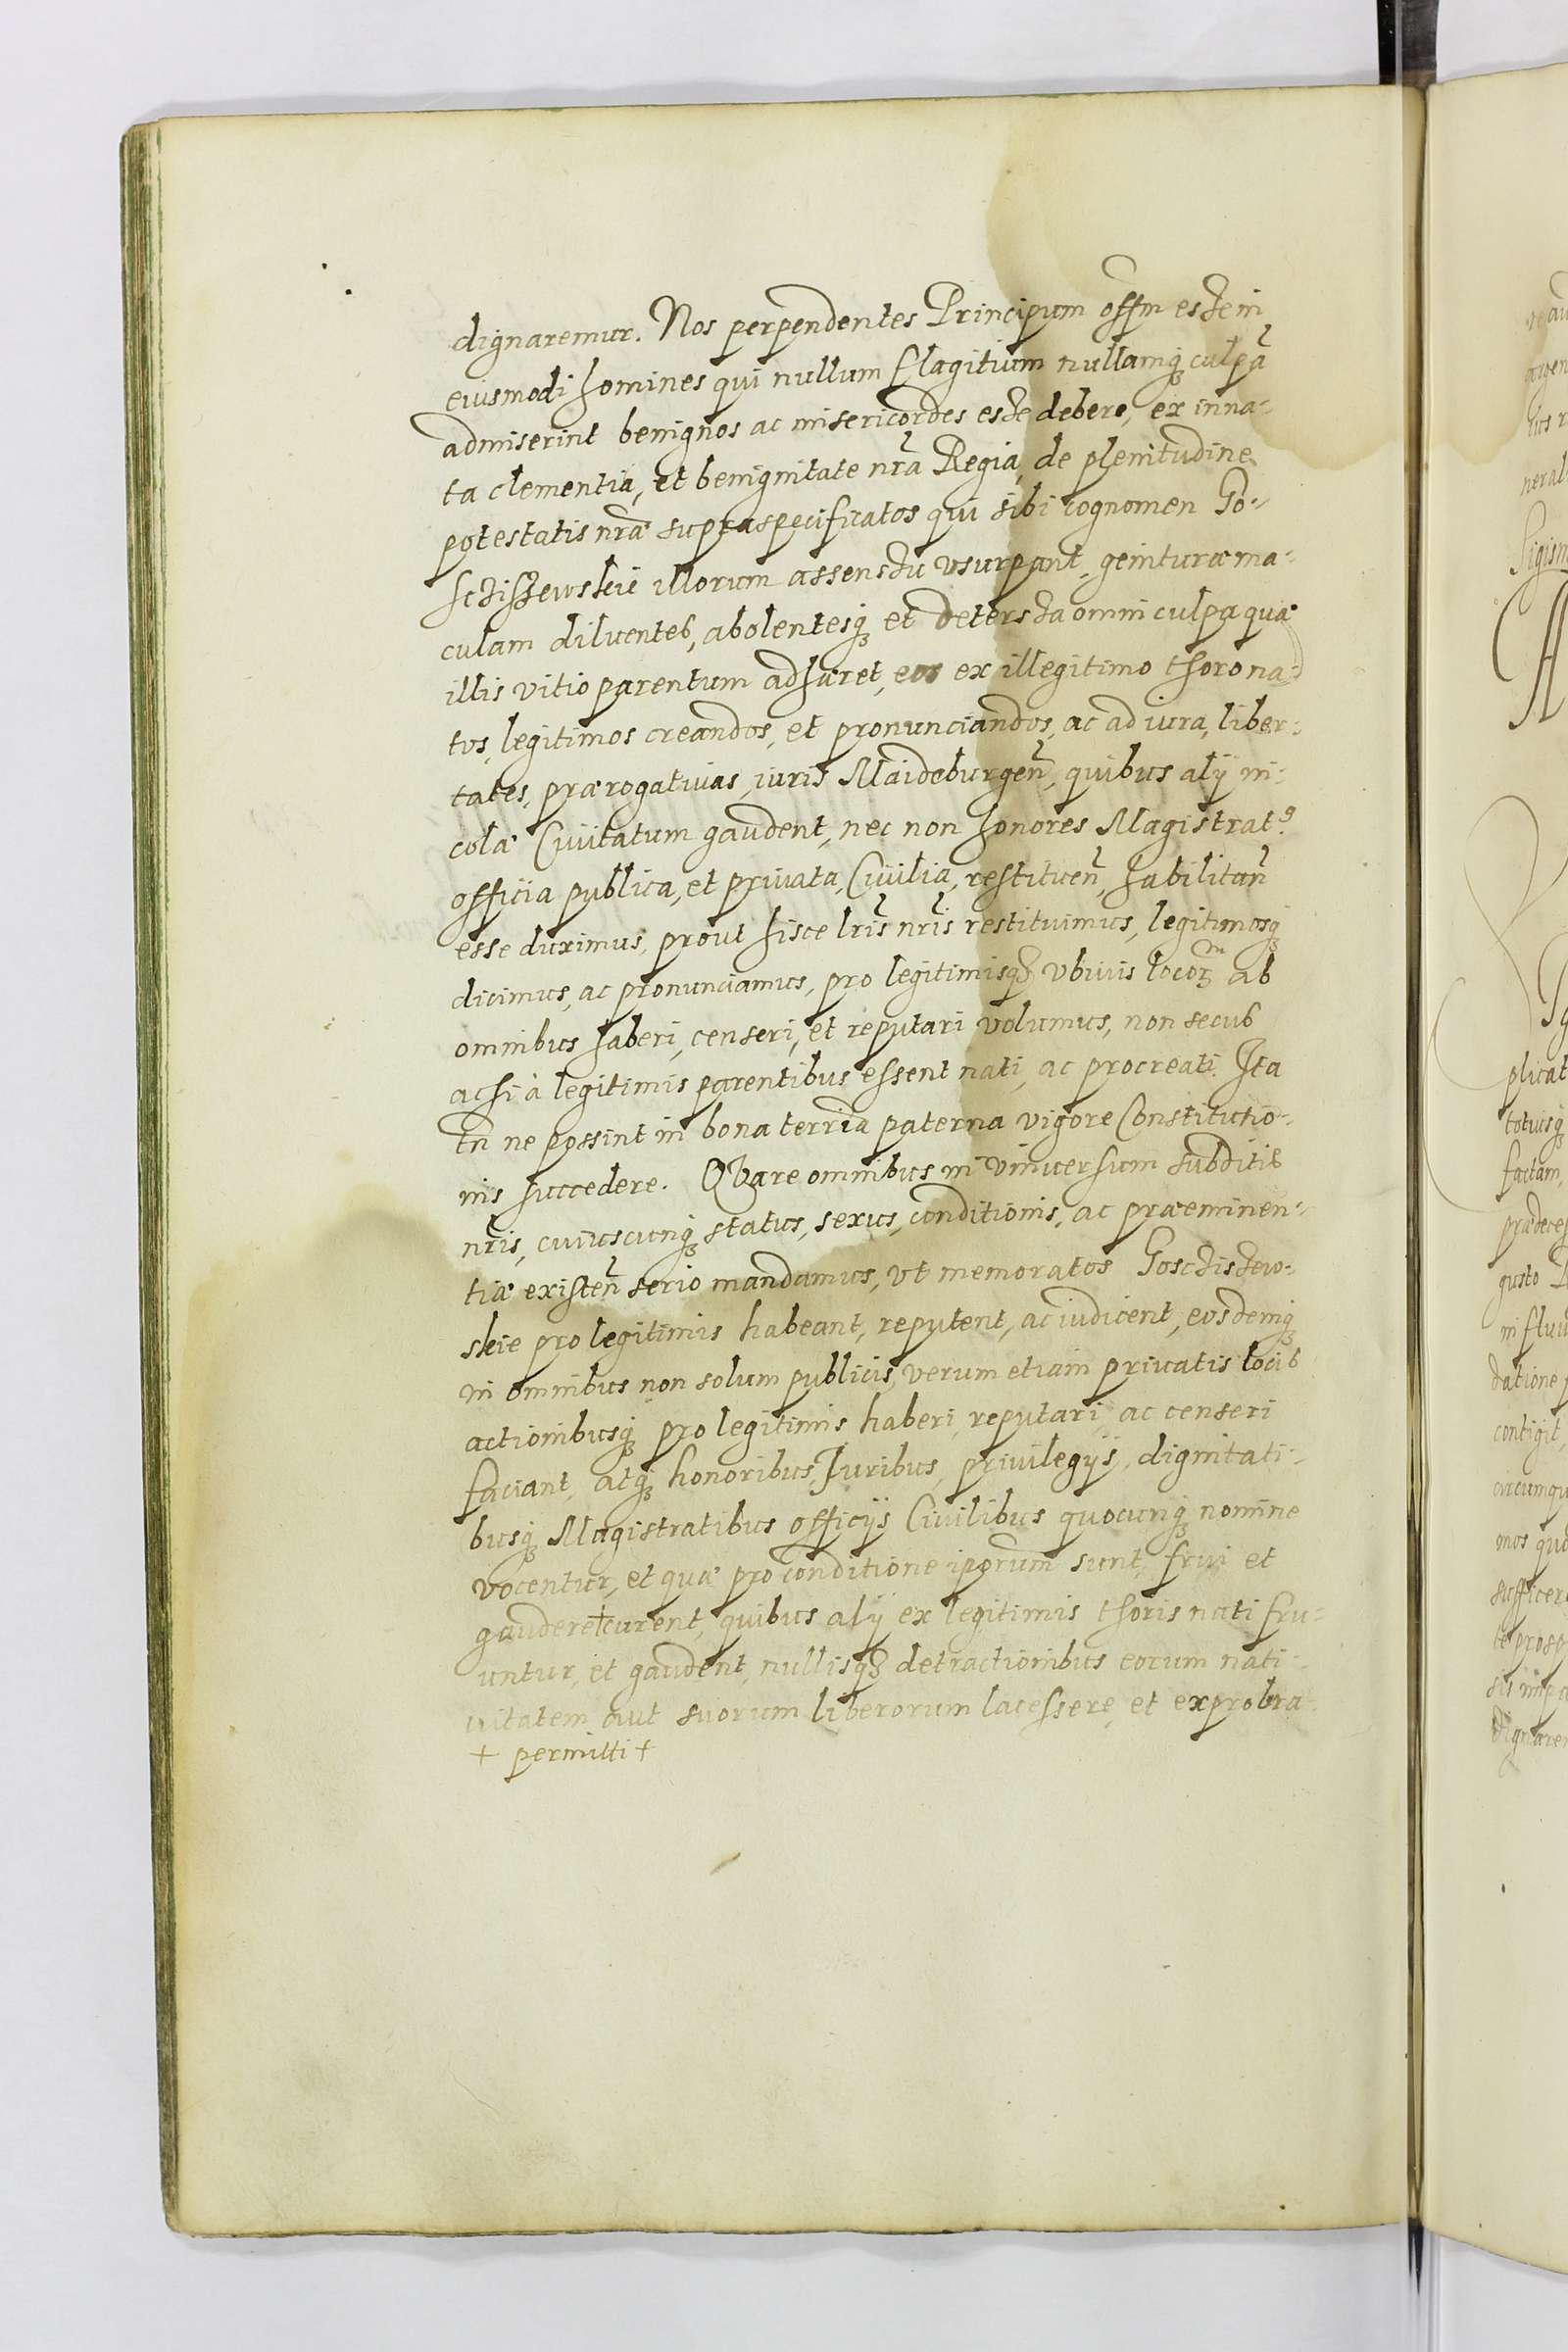 dignaremur. Nos perpendentes Principum offm esse in
eiusmodi homines qui nullum flagitium nullamq culpã
admiserint benignos ac misericordes esse debere, ex inna-
ta clementia, et benignitate nrã Regia, de plenitudine
potestatis nræ supraspecificatos qui sibi cognomen Go-
schiszewskie illorum assensu vsurpant, genituræ ma-
culam diluentes, abolentesq et detersa omni culpa quæ
illis vitio parentum adhæret, eos ex illegitimo thoro na-
tos, legitimos creandos, et pronunciandos, ac ad iura, liber-
tates, prærogativas, iuris Maideburgeñ, quibus alÿ in-
colæ Civitatum gaudent, nec non honores Magistrat9
officia publica, et privata, Civilia, restitueñ, habilitañ
esse duximus, prout hisce lris nris restituimus, legitimosq
dicimus, ac pronunciamus, pro legitimisq vbivis locorm ab
omnibus haberi, censeri, et reputari volumus, non secus
acsi à legitimis parentibus essent nati, ac procreati. Ita
tñ ne possint in bona terria paterna vigore Constitutio-
nis succedere. QVare omnibus in vniuersum subditis
nris, cuiuscunq status, sexus, conditionis, ac præeminen-
tiæ existeñ serio mandamus, vt memoratos Goschishew-
skie pro legitimis habeant, reputent, ac iudicent, eosdemq
in omnibus non solum publicis, verum etiam priuatis locis
actionibusq pro legitimis haberi, reputari, ac censeri
faciant, atq honoribus, Juribus, privilegÿs, dignitati-
busq Magistratibus officÿs Civilibus quocunq nomine
vocentur, et quæ pro conditione iporum sunt, frui et
gaudere+curent, quibus alÿ ex legitimis thoris nati fru-
untur, et gaudent, nullisq detractionibus eorum nati-
uitatem aut suorum liberorum lacessere, et exprobra
+ permitti +